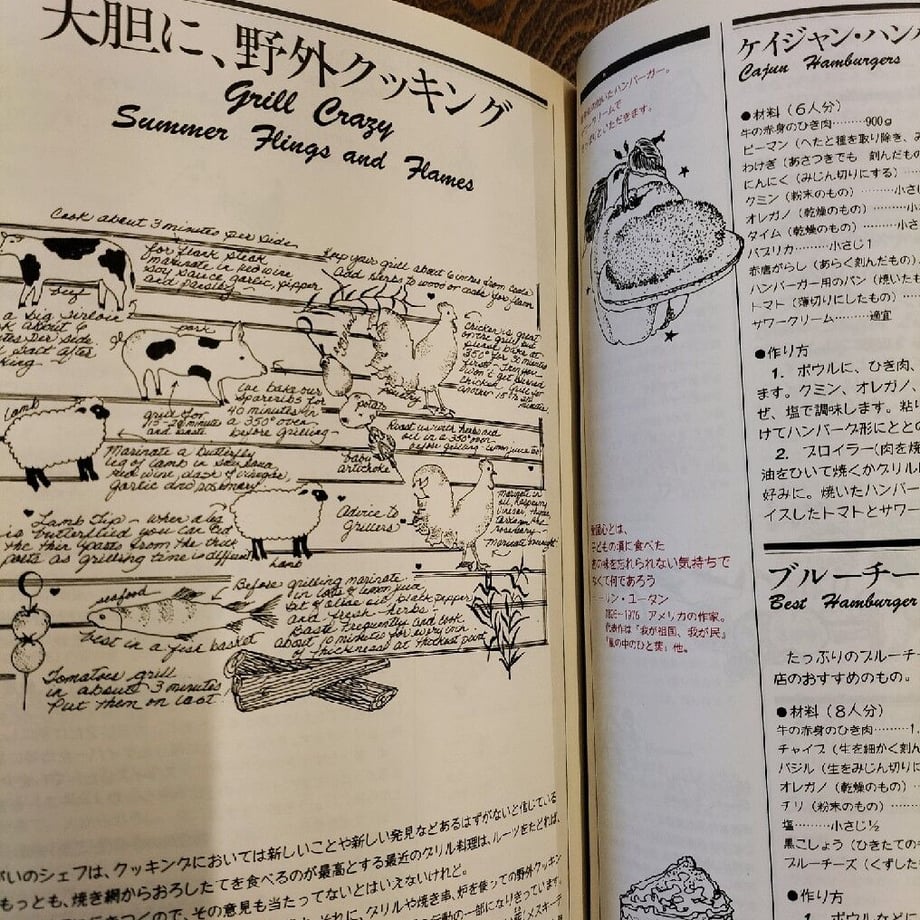 大胆に、野外クッキング
Grill Crazy
Summer Flings and Flames
Cook about 3 minutes per side
for flank steak
marinate in red wine
soy sauce, garlic, pepper
and parsley
Keep your grill about 6 inches from coals
Add herbs to wood or coals for flavor
beef
a Big Sirloin
about 6
Per Side
Salt After
king
pork
grill for
15-20 minutes
and baste
We bake our
Spareribs for
40 minutes in
a 350° oven
before grilling
Chicken is great
on the grill but
please bake at
350° for 30
minutes
first. Then you
won't get burned
chicken. Grill for
another
minutes
poultry
potato
Roast us with herbs and
oil in a 350° oven
before grilling
baby
artichoke
lamb
Marinate a butterfly
leg of lamb in
red wine, dash of vinegar,
garlic and rosemary
Lamb Tip - when a leg
is butterflied you can cut
the thin parts from the thick
parts as grilling time is different
lamb
Advice to
Grillers
Marinate in
oil,
rosemary
seafood
best in a fish basket
Before grilling marinate
in lots of lemon juice,
bit of olive oil, black pepper
and fresh herbs -
Baste frequently and cook
about 10 minutes for every inch
of thickness at thickest part
Tomatoes grill
in about 3 minutes
Put them on last!
いのシェフは、クッキングにおいては新しいことや新しい発見などあるはずがないと信じている
もっとも、焼き網からおろしたてを食べるのが最高とする最近のグリル料理は、ルーツをたどれば、
きつくので、その意見も当たってないとはいえないけれど。
それに、グリルや焼き串、炉を使っての野外クッキン
の一部になりきっています。
メスキート
焼いたハンバーガー。
クリームで
いただきます。
愛国心とは、
子どもの頃に食べた
味を忘れられない気持ちで
なくて何であろう
リン・ユータン
1895−1976 アメリカの作家。
代表作は「我が祖国、我が民」
「嵐の中のひと葉」他。
ケイジャン・ハンバ
Cajun Hamburgers
●材料（6人分）
牛の赤身のひき肉………900g
ピーマン（へたと種を取り除き、み
わけぎ（あさつきでも 刻んだもの
にんにく（みじん切りにする）………
クミン（粉末のもの）………小さじ
オレガノ（乾燥のもの）………小
タイム（乾燥のもの）………小さ
パプリカ………小さじ1
赤唐がらし（あらく刻んだもの）
ハンバーガー用のパン（焼いたも
トマト（薄切りにしたもの）………
サワークリーム………適宜
●作り方
1. ボウルに、ひき肉、
ます。クミン、オレガノ、
ぜ、塩で調味します。粘り
けてハンバーグ形にととの
2. ブロイラー（肉を焼
油をひいて焼くかグリル
好みに。焼いたハンバー
イスしたトマトとサワー
ブルーチー
Best Hamburger
たっぷりのブルーチー
店のおすすめのもの。
●材料（8人分）
牛の赤身のひき肉………1.
チャイブ（生を細かく刻ん
バジル（生をみじん切りに
オレガノ（乾燥のもの）…
チリ（粉末のもの）………
塩………小さじ½
黒こしょう（ひきたての
ブルーチーズ（くずした
●作り方
1. ボウルなどに